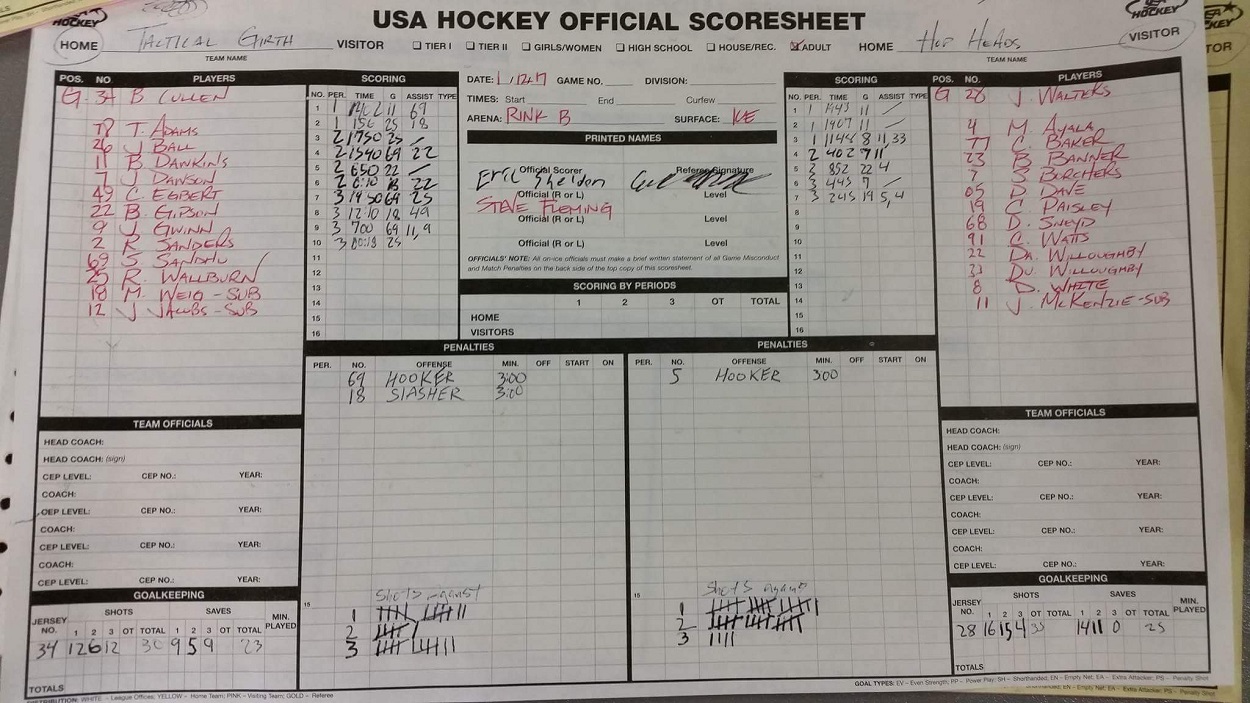 USA HOCKEY OFFICIAL SCORESHEET
HOCKEY
HOCKEY
HOME TACTICAL GIRTH VISITOR
TEAM NAME
TIER I TIER II GIRLS/WOMEN HIGH SCHOOL HOUSE/REC. ADULT
HOME HOP HEADS VISITOR
TEAM NAME
POS. NO. PLAYERS
G 34 B CULLEN
T. ADAMS
26 J BALL
11 B. DAWKINS
7 J DAWSON
49 C EGBERT
22 B. GIPSON
9 J GWINN
2 R SANDERS
69 S SANDHU
25 R. WALLBURN
18 M. WEIO - SUB
12 J JACOBS - SUB
SCORING
NO. PER. TIME G ASSIST TYPE
1 1 11 69
2 1 156 25 18
3 2 1750 25
4 2 1540 69 22
5 2 650 22
6 2 0:10 18 22
7 3 1950 69 25
8 3 12:10 18 49
9 3 700 69 11, 9
10 3 00:18 25
11
12
13
14
15
16
DATE: GAME NO. DIVISION:
TIMES: Start End Curfew
ARENA: RINK B SURFACE: ICE
PRINTED NAMES
Official Scorer Referee Signature
Eric Sheldon
Official (R or L) Level
STEVE FLEMING
Official (R or L) Level
Official (R or L) Level
OFFICIALS' NOTE: All on-ice officials must make a brief written statement of all Game Misconduct
and Match Penalties on the back side of the top copy of this scoresheet.
SCORING BY PERIODS
1 2 3 OT TOTAL
HOME
VISITORS
SCORING
NO. PER. TIME G ASSIST TYPE
1 1 1943 11
2 1 1407 11
3 1 1148 8 11,33
4 2 402 7 11
5 3 852 22 4
6 3 443 7
7 3 245 19 5,4
8
9
10
11
12
13
14
15
16
POS. NO. PLAYERS
G 28 J. WALTERS
4 M AYALA
77 C. BAKER
23 B. BANNER
7 S BORCHERS
05 D. DAVE
19 C PAISLEY
68 D. SNEYD
91 C. WATTS
22 DA. WILLOUGHBY
33 DU WILLOUGHBY
8 D. WHITE
11 J. MCKENZIE-SUB
PENALTIES
PER. NO. OFFENSE MIN. OFF START ON
69 HOOKER 3:00
18 SLASHER 3:00
15
Shots against
1
2
3
PENALTIES
PER. NO. OFFENSE MIN. OFF START ON
5 HOOKER 3:00
15
Shots against
1
2
3
TEAM OFFICIALS
HEAD COACH:
HEAD COACH: (sign)
CEP LEVEL: CEP NO.: YEAR:
COACH:
CEP LEVEL: CEP NO.: YEAR:
COACH:
CEP LEVEL: CEP NO.: YEAR:
COACH:
CEP LEVEL: CEP NO.: YEAR:
GOALKEEPING
JERSEY NO. SHOTS SAVES MIN. PLAYED
1 2 3 OT TOTAL 1 2 3 OT TOTAL
34 12 6 12 30 9 5 9 23
TOTALS
TEAM OFFICIALS
HEAD COACH:
HEAD COACH: (sign)
CEP LEVEL: CEP NO.: YEAR:
COACH:
CEP LEVEL: CEP NO.: YEAR:
COACH:
CEP LEVEL: CEP NO.: YEAR:
COACH:
CEP LEVEL: CEP NO.: YEAR:
GOALKEEPING
JERSEY NO. SHOTS SAVES MIN. PLAYED
1 2 3 OT TOTAL 1 2 3 OT TOTAL
28 16 15 4 35 14 11 0 25
TOTALS
DISTRIBUTION: WHITE - League Offices; YELLOW - Home Team; PINK - Visiting Team; GOLD - Referee
GOAL TYPES: EV - Even Strength; PP - Power Play; SH - Shorthanded; EN - Empty Net; EA - Extra Attacker; PS - Penalty Shot